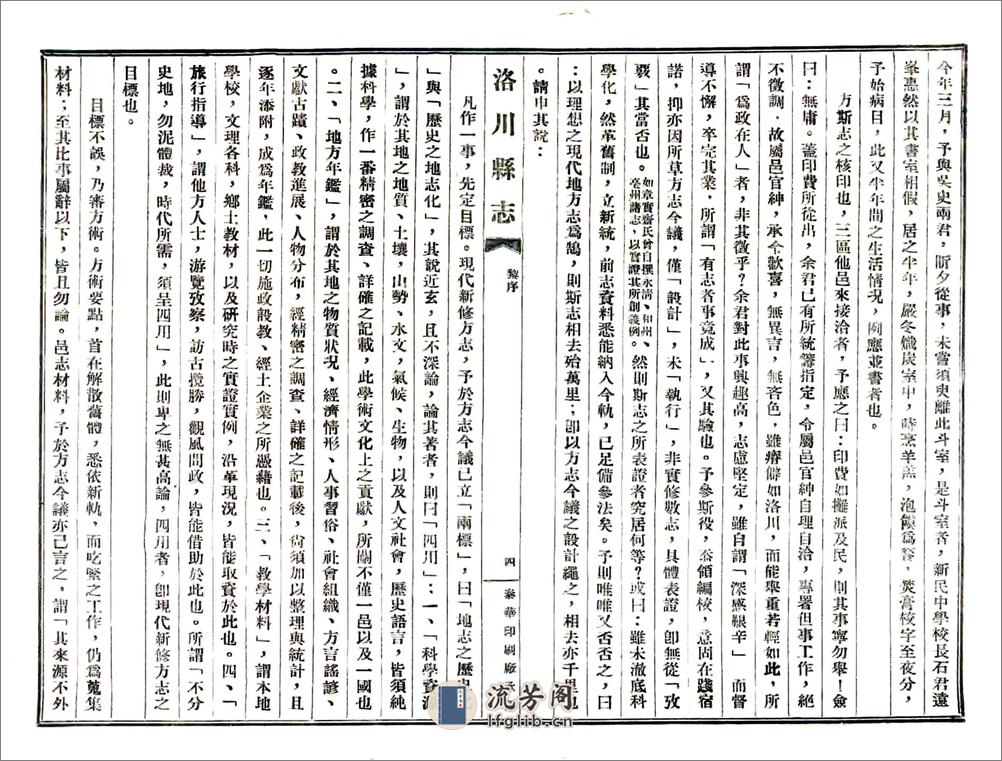 今年三月，予與吳史兩君，昕夕從事，未嘗須臾離此斗室，是斗室者，新民中學校長石君遠
峯惠然以其書室相假，居之半年，嚴冬熾炭室中，時烹羊羔，泡饃爲餐，焚膏校字至夜分，
予始病目，此又半年間之生活情况，例應並書者也。
方斯志之核印也，三區他邑來接洽者，予應之曰：印費如攤派及民，則其事寧勿舉！僉
曰：無庸。蓋印費所從出，余君已有所統籌指定，令屬邑官紳自理自洽，專署但事工作，絕
不徵調，故屬邑官紳，承令歡喜，無異言，無吝色，雖瘠僻如洛川，而能舉重若輕如此，所
謂「爲政在人」者，非其徵乎？余君對此事興趣高，志慮堅定，雖自謂「深感艱辛」而督
導不懈，卒完其業，所謂「有志者事竟成」，又其驗也。予參斯役，忝領編校，意固在踐宿
諾，抑亦因所草方志今議，僅「設計」，未「執行」，非實修數志，具體表證，卽無從「攷
覈」其當否也。如章實齋氏曾自撰永清、和州、亳州諸志，以實證其所創義例。然則斯志之所表證者究居何等？或曰：雖未澈底科
學化，然革舊制，立新統，前志資料悉能納入今軌，已足備參法矣。予則唯唯又否否之，曰
：以理想之現代地方志爲鵠，則斯志相去殆萬里；卽以方志今議之設計繩之，相去亦千里也
。請申其說：
洛川縣志
黎序
四
泰華印刷廠承
凡作一事，先定目標。現代新修方志，予於方志今議已立「兩標」，曰「地志之歷史
」與「歷史之地志化」，其說近玄，且不深論，論其著者，則曰「四用」：一、「科學資源
」，謂於其地之地質、土壤，山勢、水文，氣候、生物，以及人文社會，歷史語言，皆須純
據科學，作一番精密之調查、詳確之記載，此學術文化上之貢獻，所關不僅一邑以及一國也
。二、「地方年鑑」，謂於其地之物質狀况、經濟情形、人事習俗、社會組織、方言謠諺、
文獻古蹟、政教進展、人物分布，經精密之調查、詳確之記載後，尙須加以整理與統計，且
逐年添附，成爲年鑑，此一切施政設教、經土企業之所憑藉也。三、「教學材料」，謂本地
學校，文理各科，鄉土教材，以及研究時之實證實例，沿革現況，皆能取資於此也。四、「
旅行指導」，謂他方人士，游覽攷察，訪古攬勝，觀風問政，皆能借助於此也。所謂「不分
史地，勿泥體裁，時代所需，須呈四用」，此則卑之無甚高論，四用者，卽現代新修方志之
目標也。
目標不誤，乃審方術。方術要點，首在解散舊體，悉依新軌，而吃緊之工作，仍爲蒐集
材料；至其比事屬辭以下，皆且勿論。邑志材料，予於方志今議亦已言之，謂「其來源不外
流芳阁
lfglib.cn